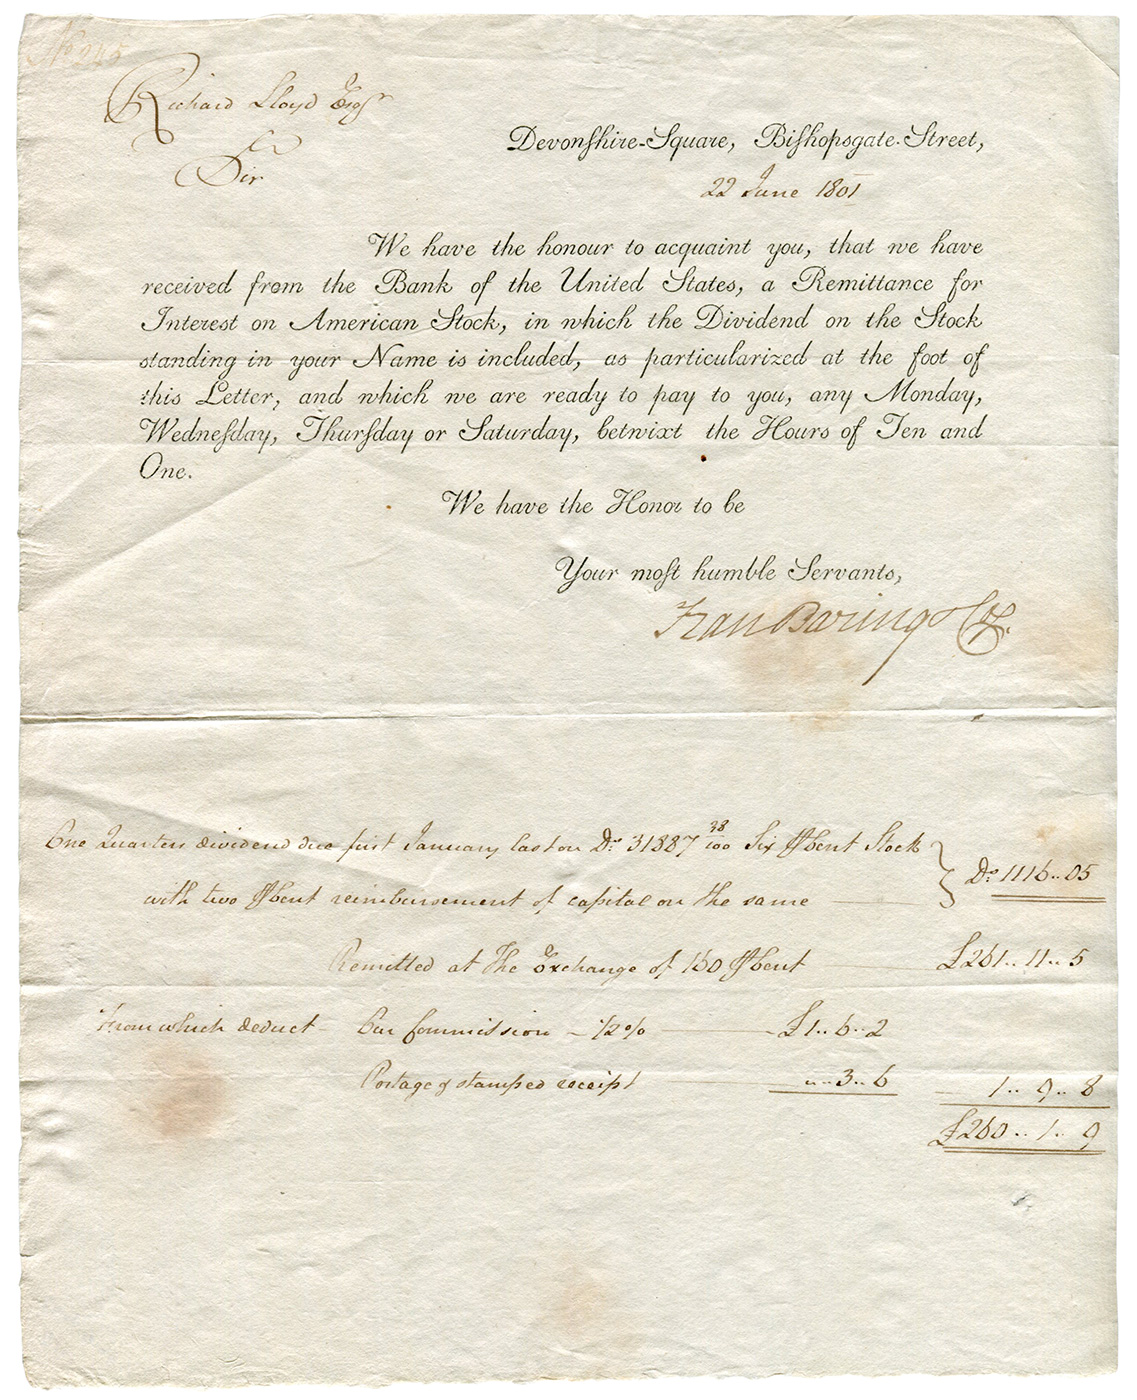 Richard Lloyd Esqr
Sir
Devonſhire-Square, Biſhopsgate-Street,
22 June 1801
We have the honour to acquaint you, that we have
received from the Bank of the United States, a Remittance for
Interest on American Stock, in which the Dividend on the Stock
standing in your Name is included, as particularized at the foot of
this Letter, and which we are ready to pay to you, any Monday,
Wedneſday, Thurſday or Saturday, betwixt the Hours of Ten and
One.
We have the Honor to be
Your moſt humble Servants,
Fran Baring & Co.
One Quarters dividend due first January last on Ds 31887 38/100 Six P Cent Stock
with two P Cent reimbursement of capital on the same } Ds 1116..05
Remitted at the Exchange of 160 P Cent £261..11..5
From which deduct - Our Commission - 1/2 % £1..6..2
Postage & stamped receipt „..3..6 1..9..8
£260..1..9